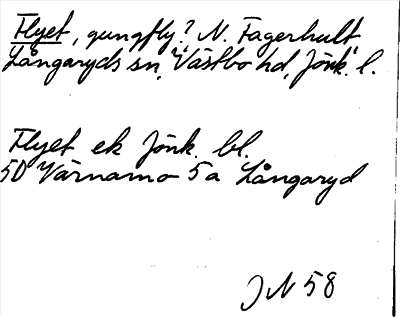 Flyet, gungfly? N. Fagerhult
Långaryds sn, Västbo hd, Jönk. l.
Flyet ek Jönk. bl.
5D Värnamo 5a Långaryd
JN 58